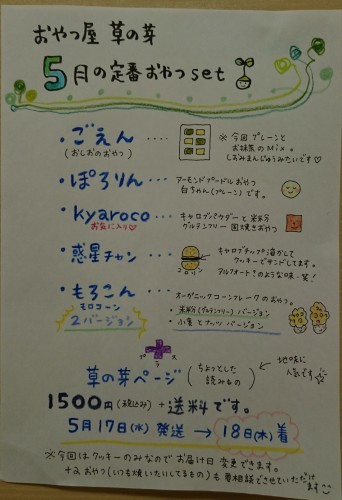 おやつ屋 草の芽
5月の定番おやつset
・ごえん ････ ※今回プレーンと
(おしおのおやつ) お抹茶のMix。
しおみまんじゅうみたいです♡
・ぽろりん ･･･ アーモンドプードルおやつ
白ちゃん(プレーン)です。
・kyaroco ･･･ キャロブパウダーと米粉
お気に入り♡ グルテンフリー 固焼きおやつ
・惑星チャン ･･･ キャロブチップ溶かして
クッキーでサンドしてます。
アルフォート®のような味。笑！
・もろこん ･･･ オーガニックコーンフレークのおやつ。
モロコーン ・米粉(グルテンフリー)バージョン
2バージョン ・小麦とナッツバージョン
プラス
草の芽ページ (ちょっとした読みもの) ← 地味に人気です。
1500円(税込み)+送料です。
5月17日(水)発送 → 18日(木)着
※今回はクッキーのみなのでお届け日変更できます。
+α おやつ(いつも焼いたりしてるもの)も要相談でさせていただけます